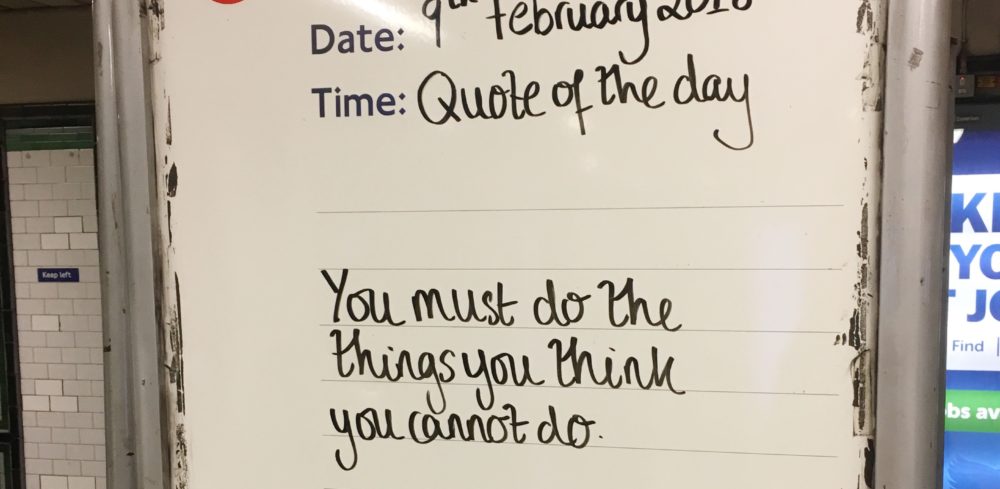 Date: 9th February
Time: Quote of the day
You must do the
things you think
you cannot do.
Keep left
Find